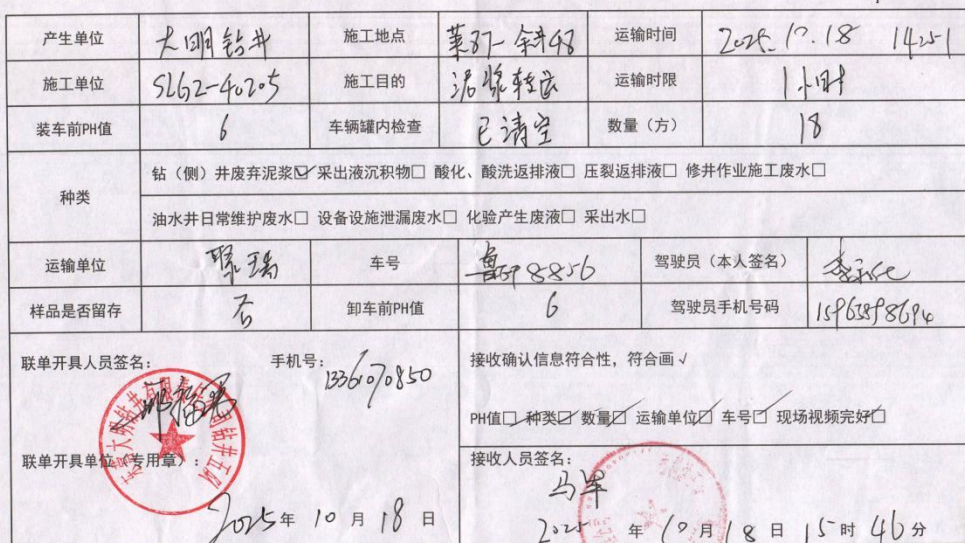 产生单位 大明钻井 施工地点 莱87-斜48 运输时间 2025.10.18 14:51
施工单位 SLG2-40205 施工目的 泥浆转运 运输时限 1小时
装车前PH值 6 车辆罐内检查 已清空 数量（方） 18
种类 钻（侧）井废弃泥浆☑ 采出液沉积物□ 酸化、酸洗返排液□ 压裂返排液□ 修井作业施工废水□
油水井日常维护废水□ 设备设施泄漏废水□ 化验产生废液□ 采出水□
运输单位 聚瑞 车号 8856 驾驶员（本人签名）
样品是否留存 否 卸车前PH值 6 驾驶员手机号码
联单开具人员签名： 手机号： 13361070850 接收确认信息符合性，符合画√
PH值☑ 种类☑ 数量☑ 运输单位☑ 车号☑ 现场视频完好☑
联单开具单位（专用章）： 接收人员签名：
马军
2025年 10 月 18 日 2025 年 10 月 18 日 15 时 46 分